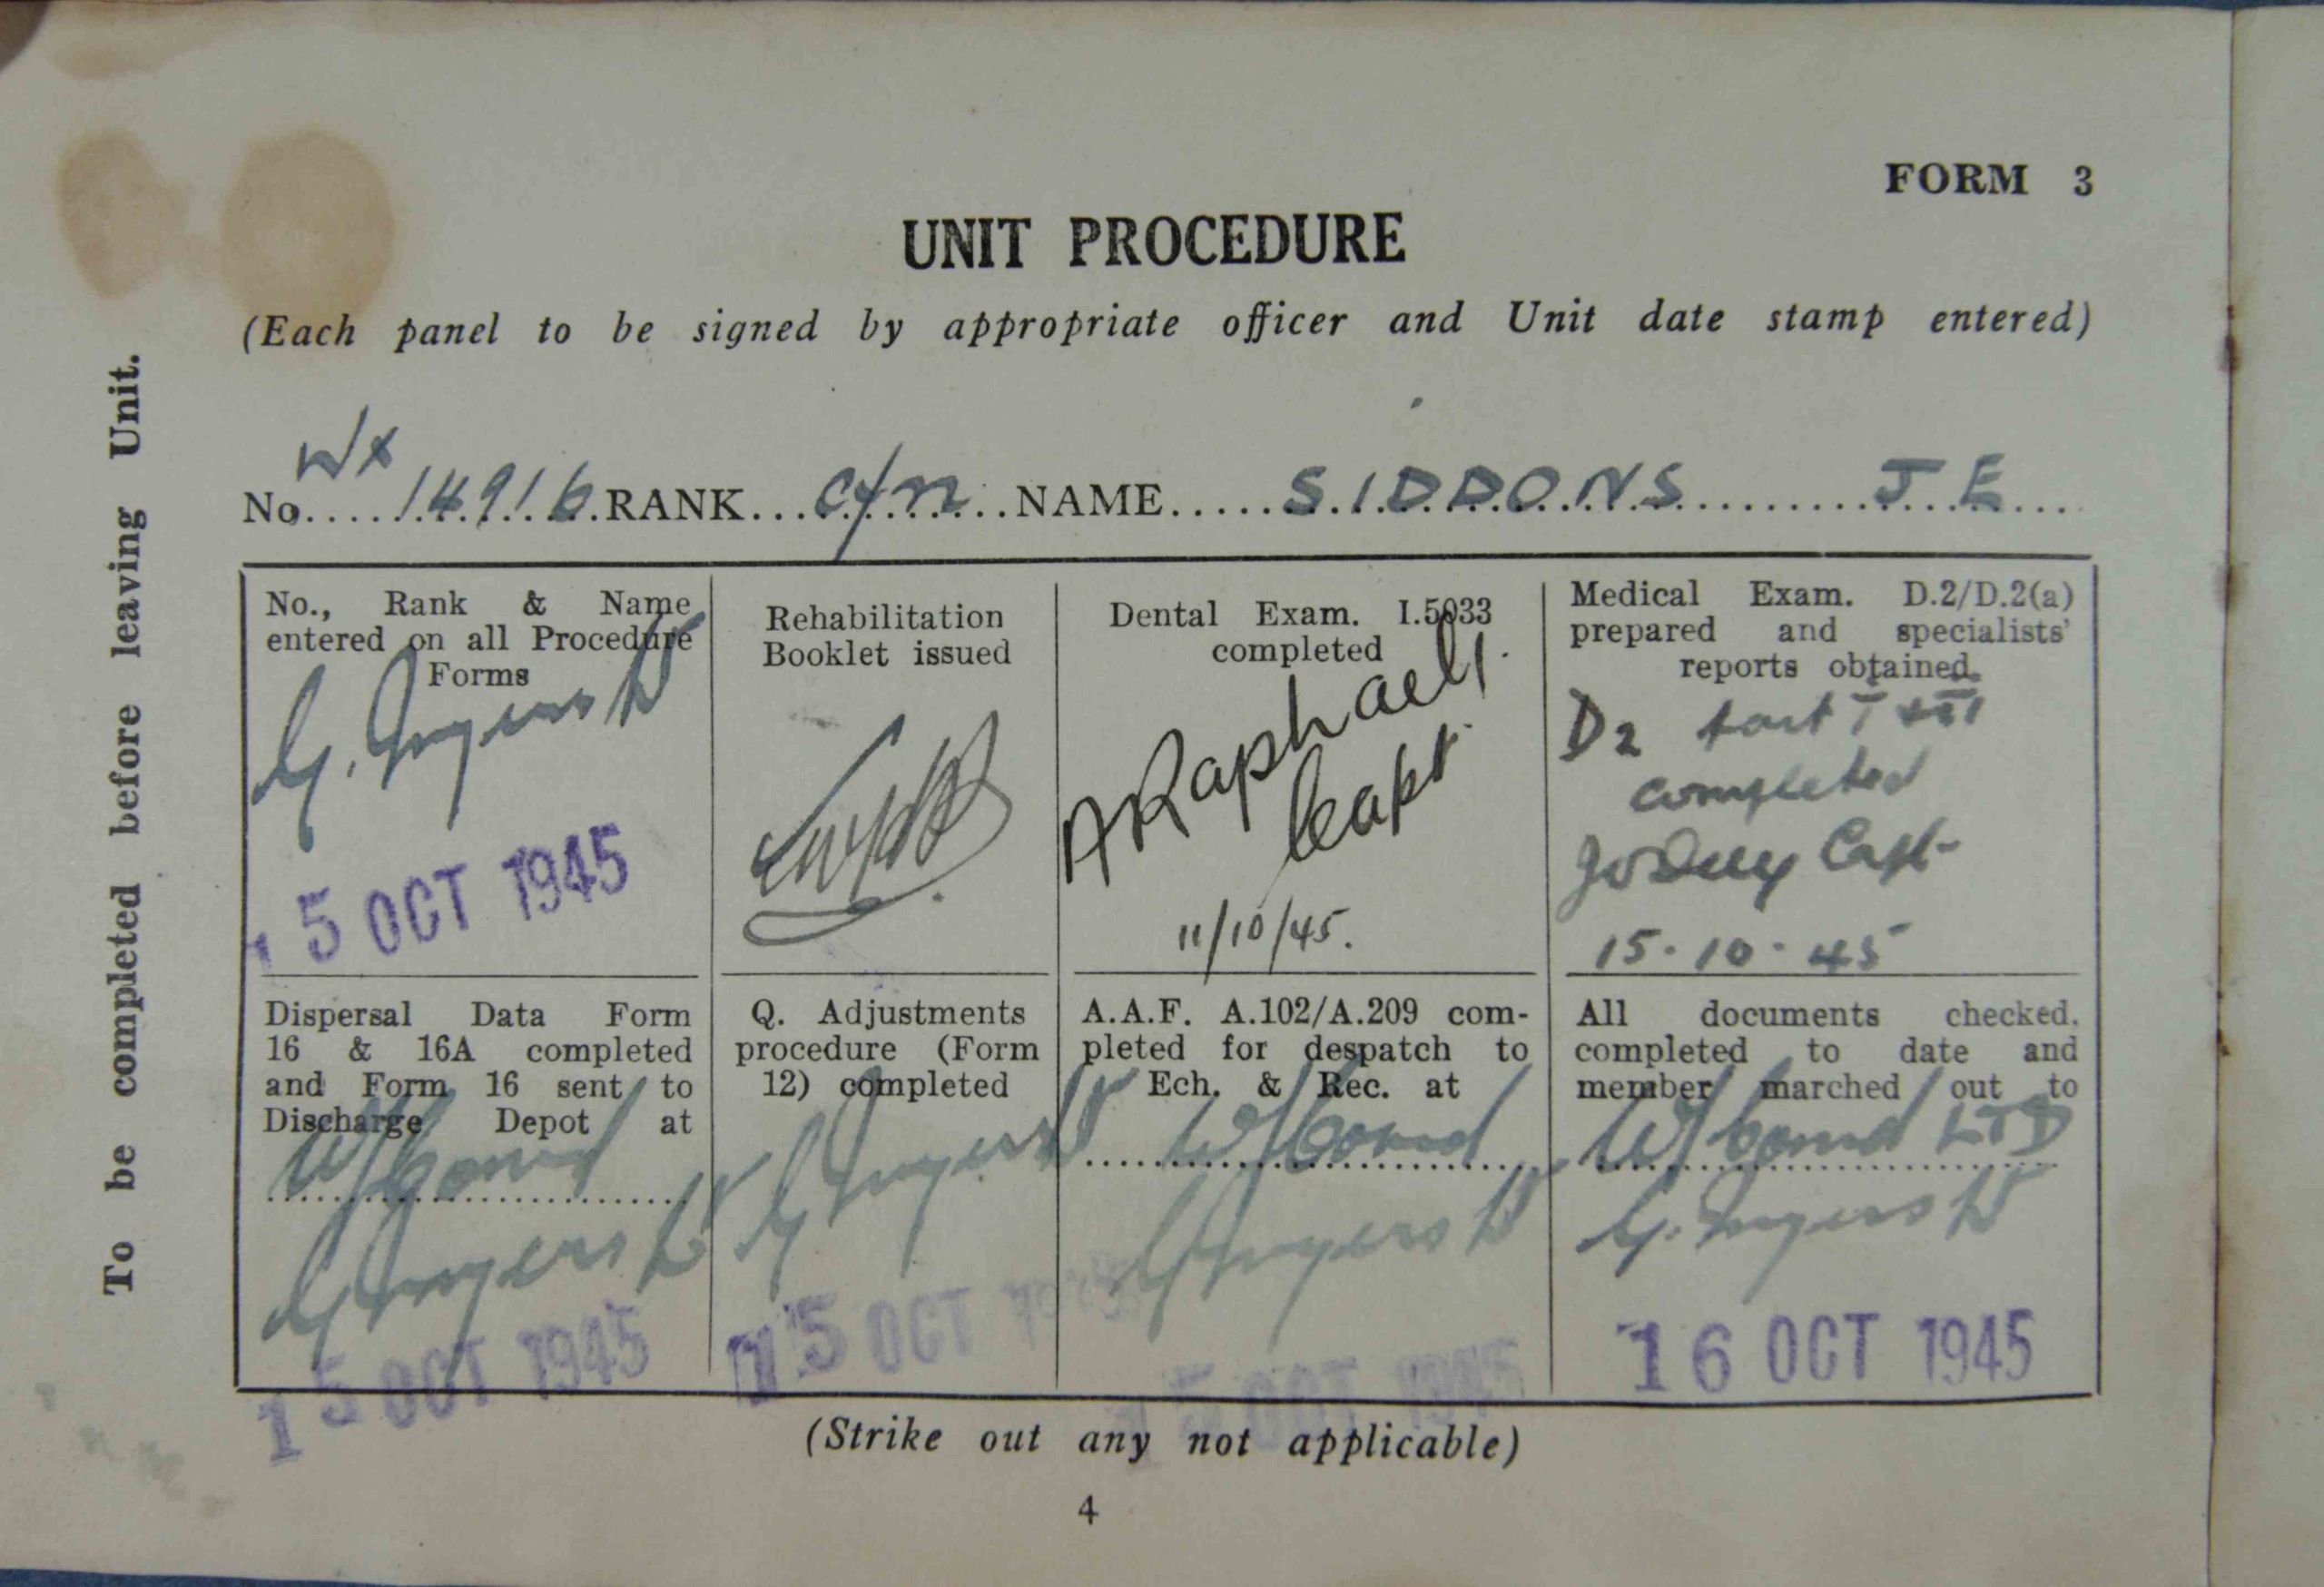 FORM 3
UNIT PROCEDURE
(Each panel to be signed by appropriate officer and Unit date stamp entered)
To be completed before leaving Unit.
WX
No.....14916.RANK...C/n......NAME.....SIDDONS.........J.E....
No., Rank & Name
entered on all Procedure
Forms
15 OCT 1945
Rehabilitation
Booklet issued
Dental Exam. I.5033
completed
A Raphael
Capt.
11/10/45.
Medical Exam. D.2/D.2(a)
prepared and specialists'
reports obtained.
D2 Part I + III
completed
Capt
15.10.45
Dispersal Data Form
16 & 16A completed
and Form 16 sent to
Discharge Depot at
W/bound
15 OCT 1945
Q. Adjustments
procedure (Form
12) completed
15 OCT 1945
A.A.F. A.102/A.209 com-
pleted for despatch to
Ech. & Rec. at
W/bound
15 OCT 1945
All documents checked,
completed to date and
member marched out to
W/bound LTD
16 OCT 1945
(Strike out any not applicable)
4